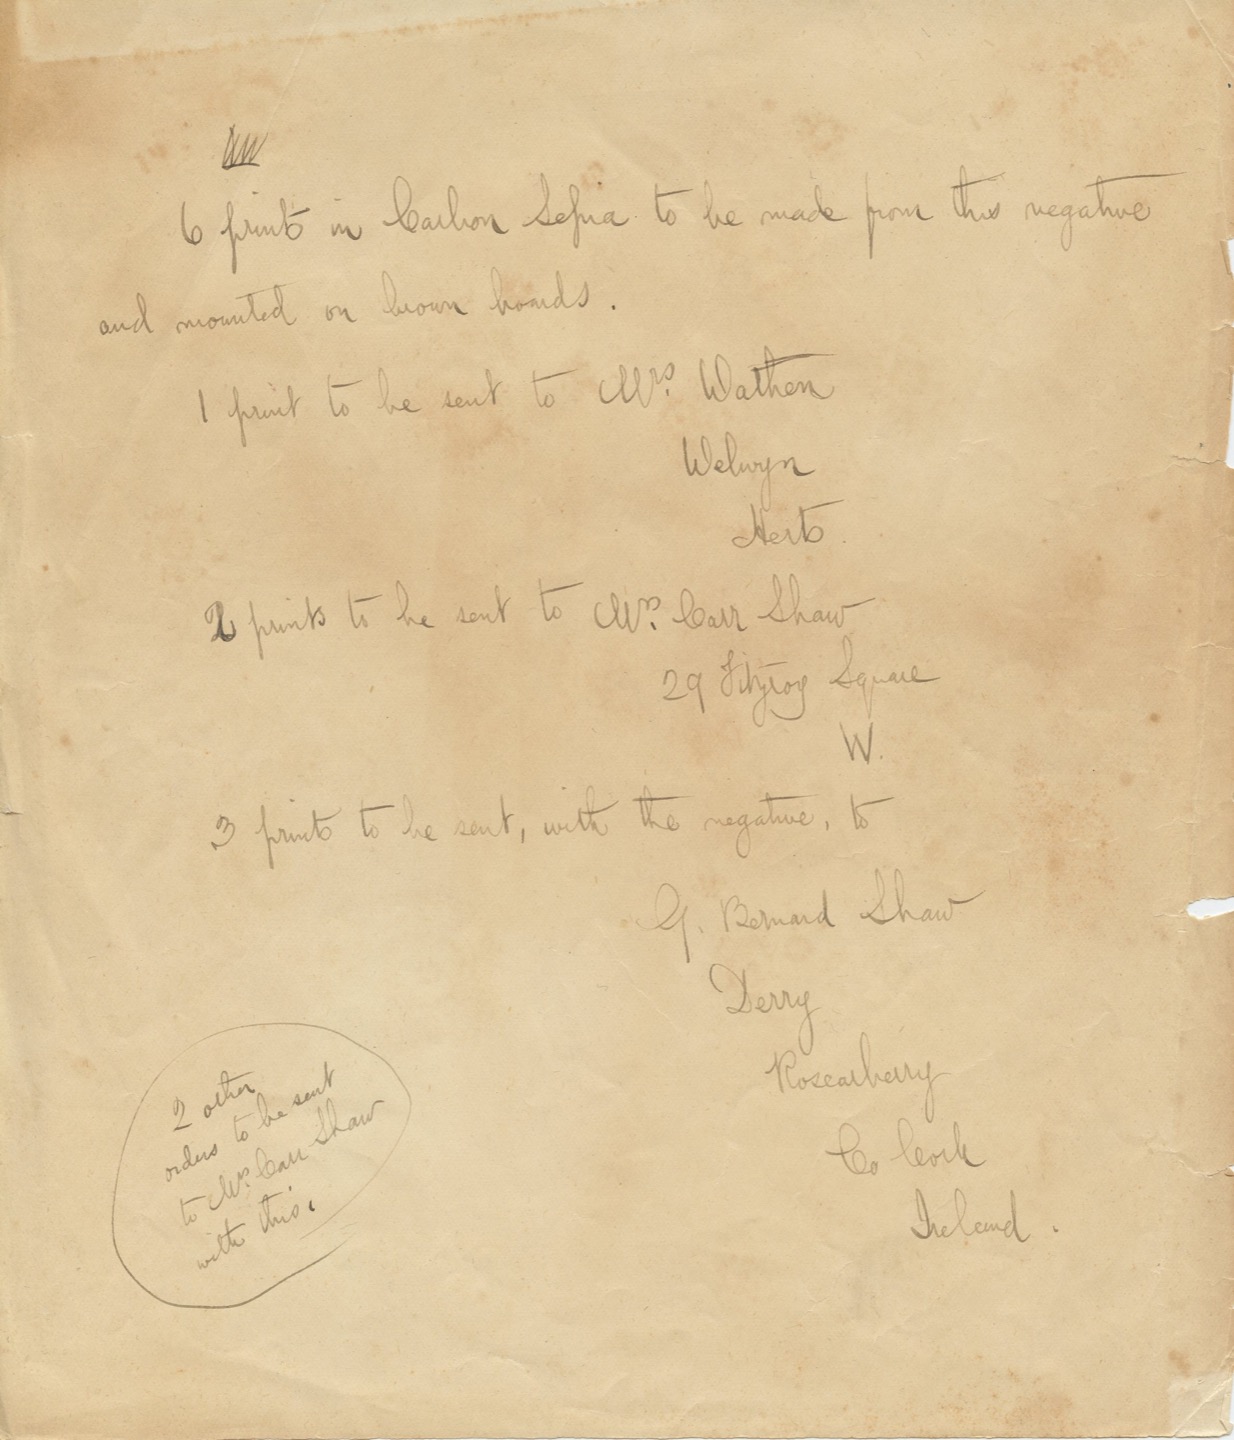 6 prints in Carbon Sepia to be made from this negative
and mounted on brown boards.
1 print to be sent to Mrs. Wathen
Welwyn
Herts.
2 prints to be sent to Mrs. Carr Shaw
29 Fitzroy Square
W.
3 prints to be sent, with the negative, to
G. Bernard Shaw
Derry
Roscarberry
Co Cork
Ireland.
2 other
orders to be sent
to Mrs. Carr Shaw
with this.